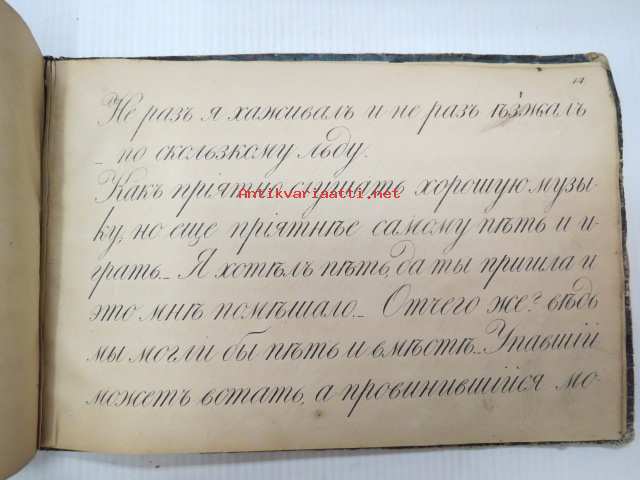 14.
Не разъ я хаживалъ и не разъ ѣзжалъ
– по скользкому льду.
Какъ пріятно слушать хорошую музы-
Antikvariaatti.net
ку, но еще пріятнѣе самому пѣть и и-
грать.– Я хотѣлъ пѣть, да ты пришла и
это мнѣ помѣшало.– Отчего же? вѣдь
мы могли бы пѣть и вмѣстѣ.– Упавшій
можетъ встать, а провинившійся мо-